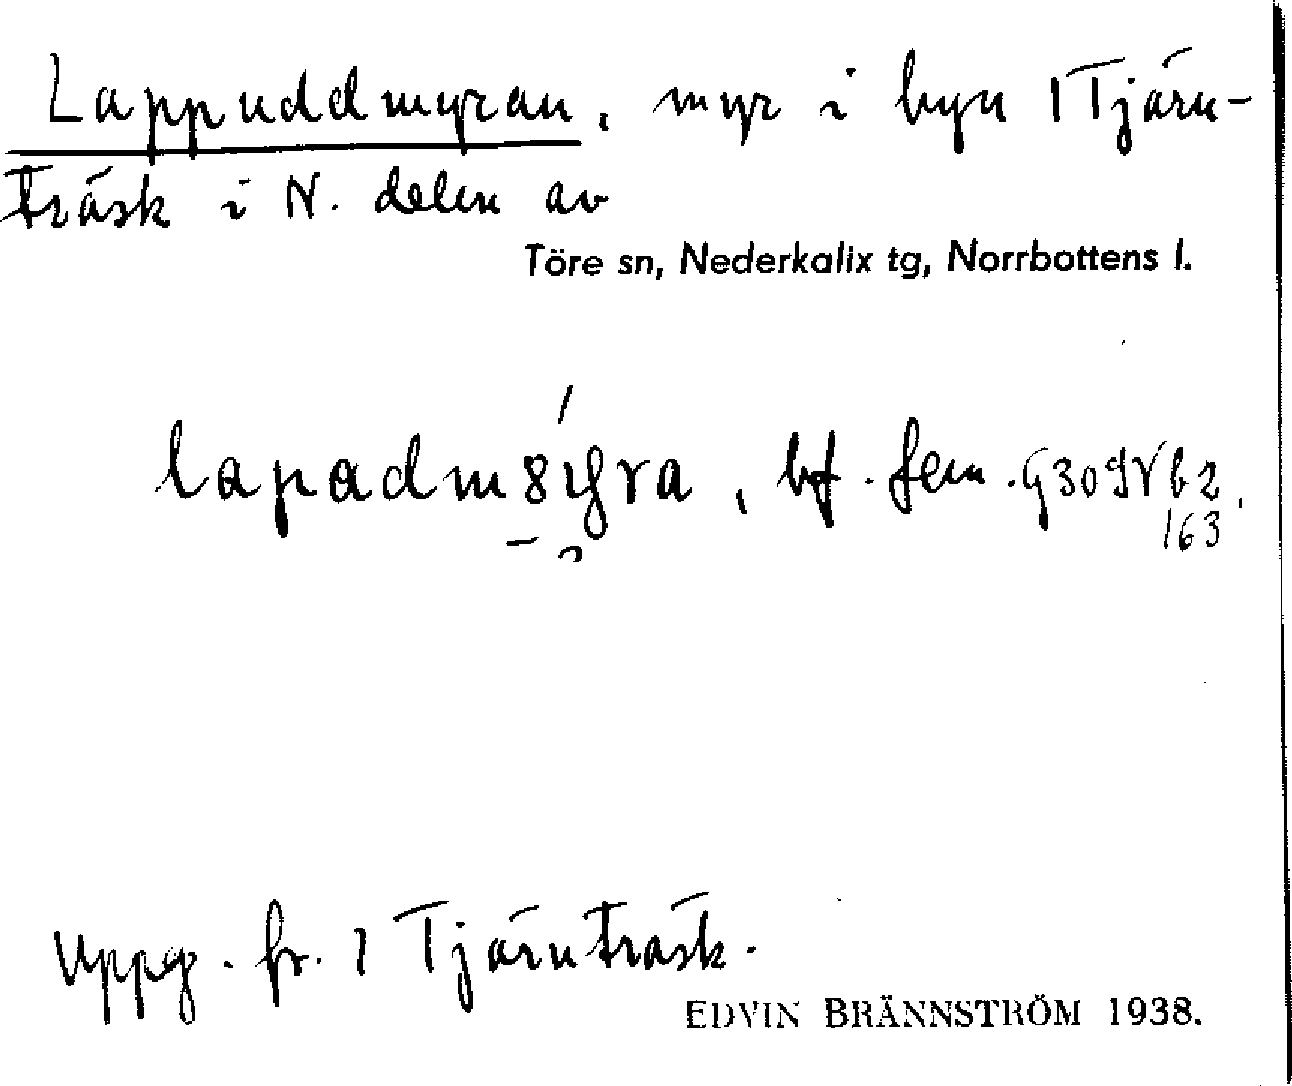 Lappuddmyran, myr i byn 1 Tjärn-
träsk i N. delen av
Töre sn, Nederkalix tg, Norrbottens l.
bf. fem.
163
Uppg. fr. 1 Tjärnträsk.
EDVIN BRÄNNSTRÖM 1938.